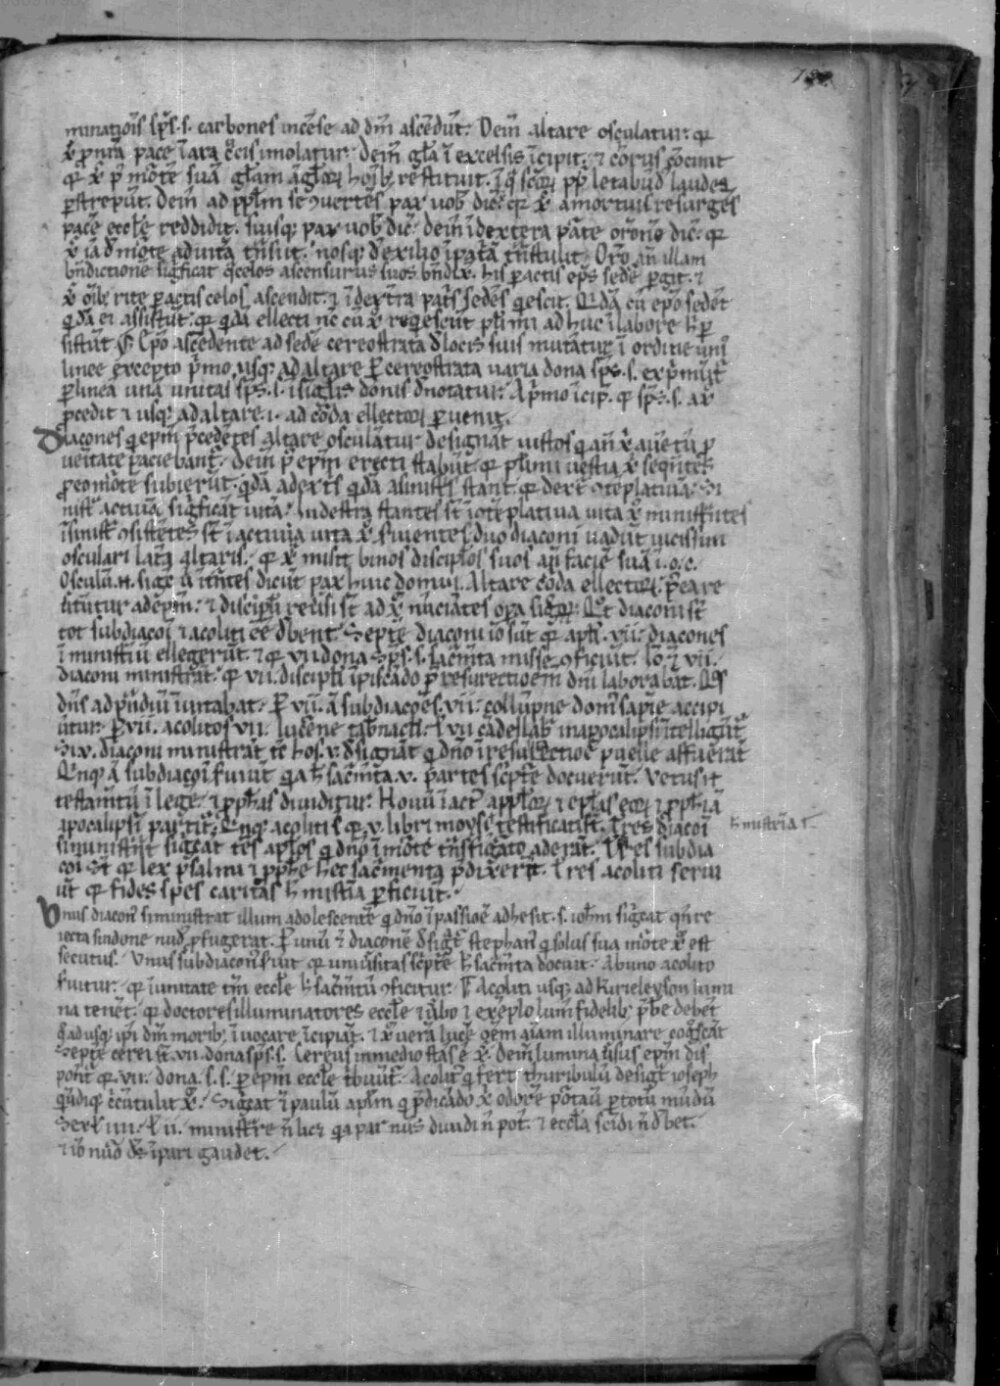 minatiois sps. s. carbones incense ad dm ascedut. Dein altare osculatur. qr
x pnra pace i ara crucis imolatur. dein gla i excelsis icipit. & corus cocinit
qr x p mote sua gliam aglor hoib restituit.
pstreput. Dein ad pplm se 9vertes pax vob dic. qr x a mortuis resurges
pace eccle reddidit. suisq pax vob dic. dein i dextera parte orone dic. qr
x ia d morte ad vita tnsiit. nosq d exilio i patria tnstulit. Oro an illam
bndictione sigficat q celos ascensurus suos bndix. his pactis eps sede pgit. &
x oib rite pactis celos ascendit. & i dextra patris sedes qescit. Qda cu epo sedet
qda ei assistut. qr qda ellecti nc cu x reqescut plimi ad huc i labore h p
sistut Epo ascedente ad sede cereostrata d locis suis mutatur i ordine uni
linee excepto pmo usq ad altare p cereostrata varia dona sps. s. exprimut
p linea una unitas sps. s. i siglis donis dnotatur. A pmo icip. q sps. s. a x
pcedit & usq ad altare. i. ad corda ellector pvenit.
Diacones q epm pcedetes altare osculatur designat iustos q an x avetu p
veritate paciebant. dein p epm erecti stabut. qr plimi vestigia x seqntes
p eo morte subierut. qda a dextris qda a sinistris stant. qr dext 9teplativa. Si
nistr activa sigficat vita. In destra stantes st i 9teplativa vita x ministrantes
i sinist 9sistetes st i activa vita x servientes duo diaconi vadut vicissim
osculari latera altaris. qr x misit binos discipulos suos an facie sua i. o. c.
Osculu. n. sigt q itntes dicut pax huic domui. Altare corda ellector.
stitutur ad epm. & discipuli reversi st ad x nunciates opa sua. Et diaconi st
tot subdiacoi & acoliti ee dbent. Septe diaconi io sut qr apli. vii. diacones
i ministiu ellegerut. & qr vii dona sps. s. sacmta misse 9ficiut. Io & vii.
diaconi ministrat. qr vii. discipli i piscado p resurectioem dni laborabat. Qs
dns ad pndiu invitabat. P vii. a subdiacoes. vii. collupne dom sapie accipi
utur. P vii. acolitos vii. lucerne tabnacli. t vii cadellab in apocalipsi itelligut
Si v. diaconi ministrat te hos. v. dsignat q dno i resurectioe puelle affuerat
Qnq a subdiacoi fuiut qa h sacmta v. partes scpte docuerut. Vetus it
testamtu i lege. & pphas dividitur. Novu i act applor & eplas eor & pphia
apocalipsi partit. Qnq acoliti s qr. v. libri moysi testificatist. Tres diacoi
h mistria t.
si ministrt sigcat tes aplos q dno i morte tnsfigato aderat. Tres subdia
coi st qr lex psalmi & pphe hec sacmenta pdixerut. Tres acoliti servi
ut qr fides spes caritas h mistia pficiut.
Vnus diacon si ministrat illum adolescente q dno i passioe adhesit. s. iohm sigcat q re
iecta sindone nud pfugerat. P unu & diacone dsigt stephan q solus sua morte x est
secutus. Vnus subdiacon fuit qr universitas scpte h sacmta docuit. Ab uno acolito
fuitur. qr i unitate tm eccle h sacmtu 9ficitur. Acoliti usq ad kirieleyson lumi
na tenet. qr doctores illuminatores eccle & vbo & exeplo lum fidelib pbe debet
qadusq ipi dm morib ivocare icipiat. & x vera luce oem aiam illuminare cogscat
Septe cerei st. vii. dona sps. s. Cereus in medio stas e x. dein lumina usus epm dis
pont qr. vii. dona. s. s. p epm eccle tbuut. Acolit q fert thuribulu desigt ioseph
qndiq circutulit x. Sigcat i paulu aplm q pdicado x odore portavit p totu mudu
Sed iiii. t ii. ministre n licz qa par nus dividi n pot. & eccla scidi n dbet.
& io nuo ds ipari gaudet.